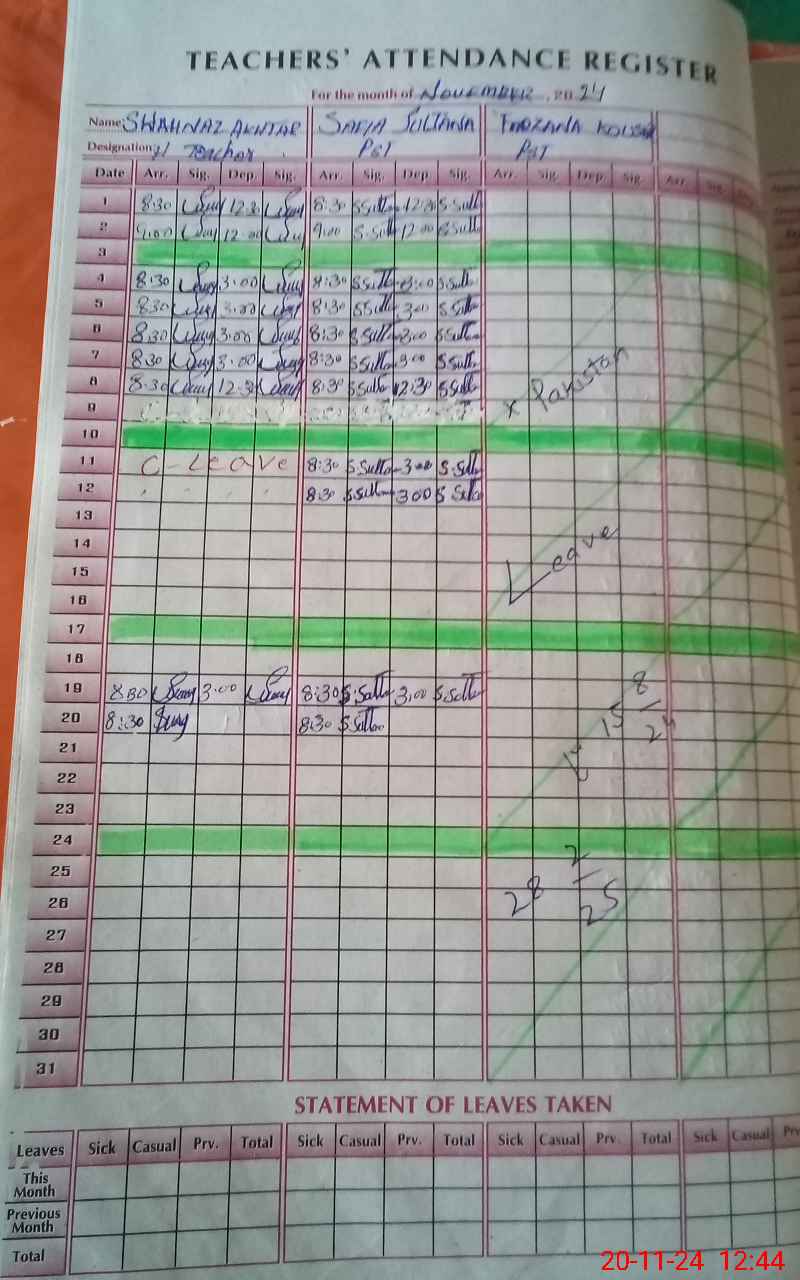 TEACHERS' ATTENDANCE REGISTER
For the month of NOVEMBER, 2024
Name: SHAHNAZ AKHTAR SAFIA SULTANA FARZANA KOUSAR
Designation: H Teacher PST PST
Date Arr. Sig. Dep. Sig. Arr. Sig. Dep. Sig. Arr. Sig. Dep. Sig. Arr. Sig.
1 8:30 12:30 8:30 S.Sulta 12:30 S.Sulta
2 9:00 12:00 9:00 S.Sulta 12:00 S.Sulta
3
4 8:30 3:00 8:30 S.Sulta 3:00 S.Sulta
5 8:30 3:00 8:30 S.Sulta 3:00 S.Sulta
6 8:30 3:00 8:30 S.Sulta 3:00 S.Sulta
7 8:30 3:00 8:30 S.Sulta 3:00 S.Sulta
8 8:30 12:30 8:30 S.Sulta 12:30 S.Sulta
x Pakistan
9
10
11 C - Leave 8:30 S.Sulta 3:00 S.Sulta
12 8:30 S.Sulta 3:00 S.Sulta
13
14
Leave
15
16
17
18
19 8:30 3:00 8:30 S.Sulta 3:00 S.Sulta
20 8:30 8:30 S.Sulta
15 8/24
21
22
23
24
25
28 2/25
26
27
28
29
30
31
STATEMENT OF LEAVES TAKEN
Leaves Sick Casual Prv. Total Sick Casual Prv. Total Sick Casual Prv. Total Sick Casual Prv
This Month
Previous Month
Total
20-11-24 12:44